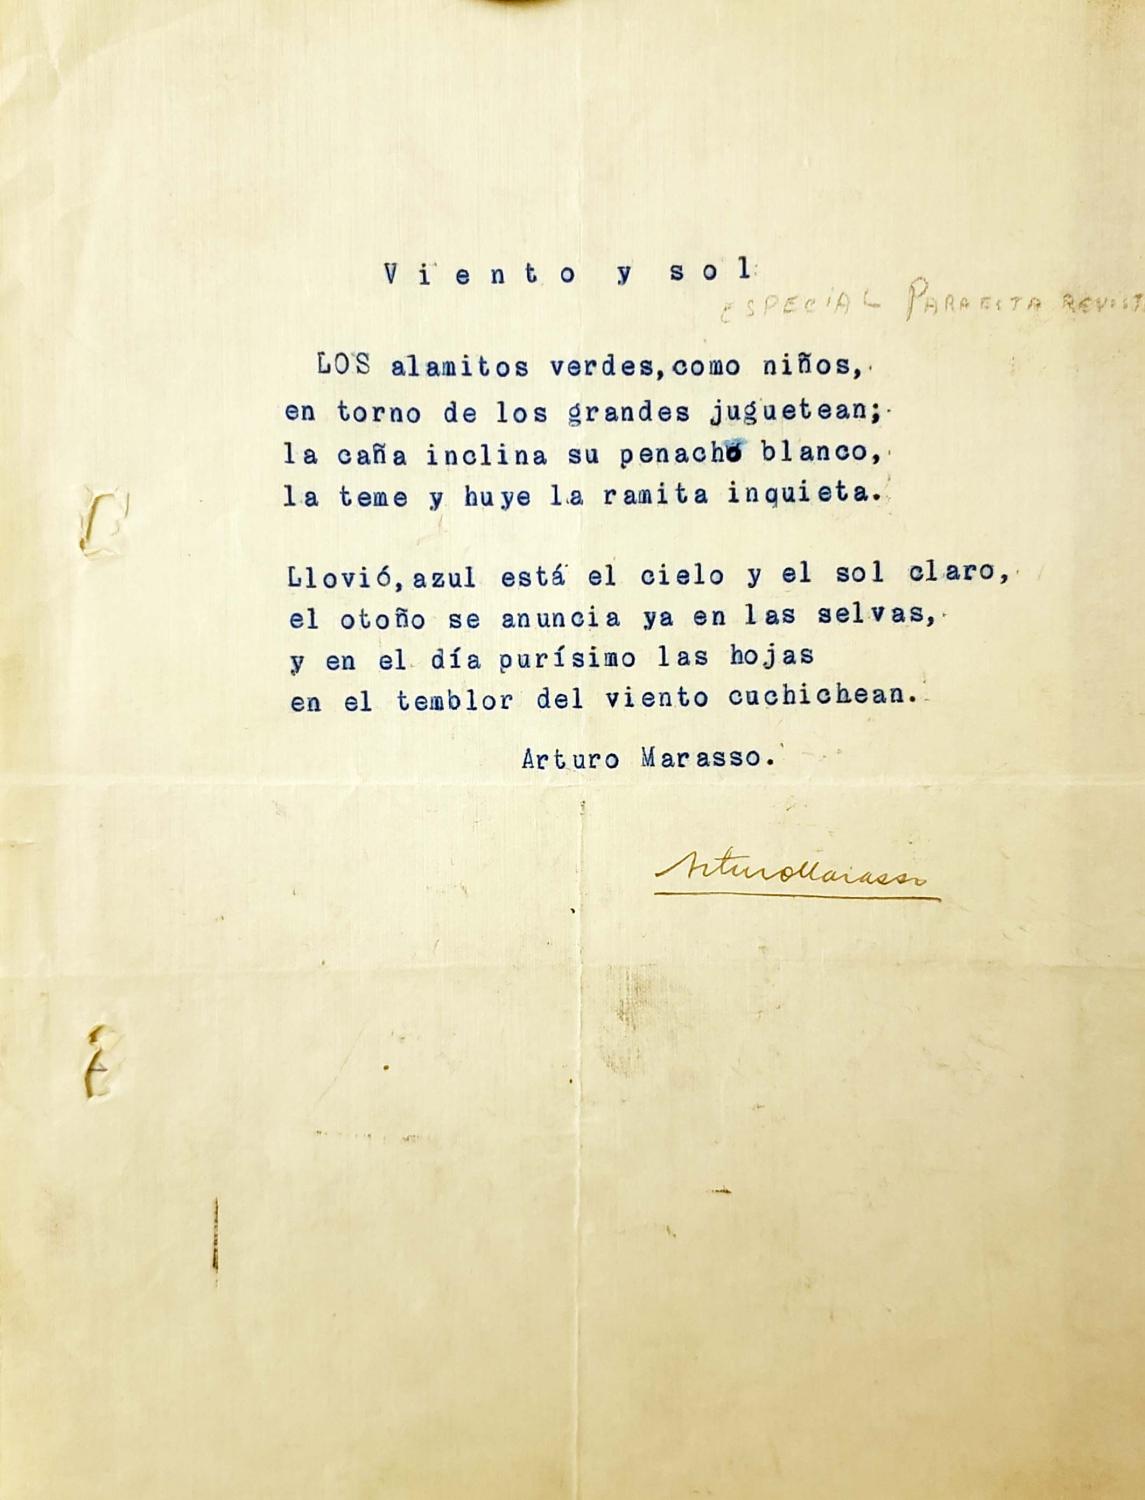 Viento y sol
ESPECIAL PARA ESTA REVISTA
LOS alamitos verdes,como niños,
en torno de los grandes juguetean;
la caña inclina su penacho blanco,
la teme y huye la ramita inquieta.
Llovió,azul está el cielo y el sol claro,
el otoño se anuncia ya en las selvas,
y en el día purísimo las hojas
en el temblor del viento cuchichean.
Arturo Marasso.
Arturo Marasso